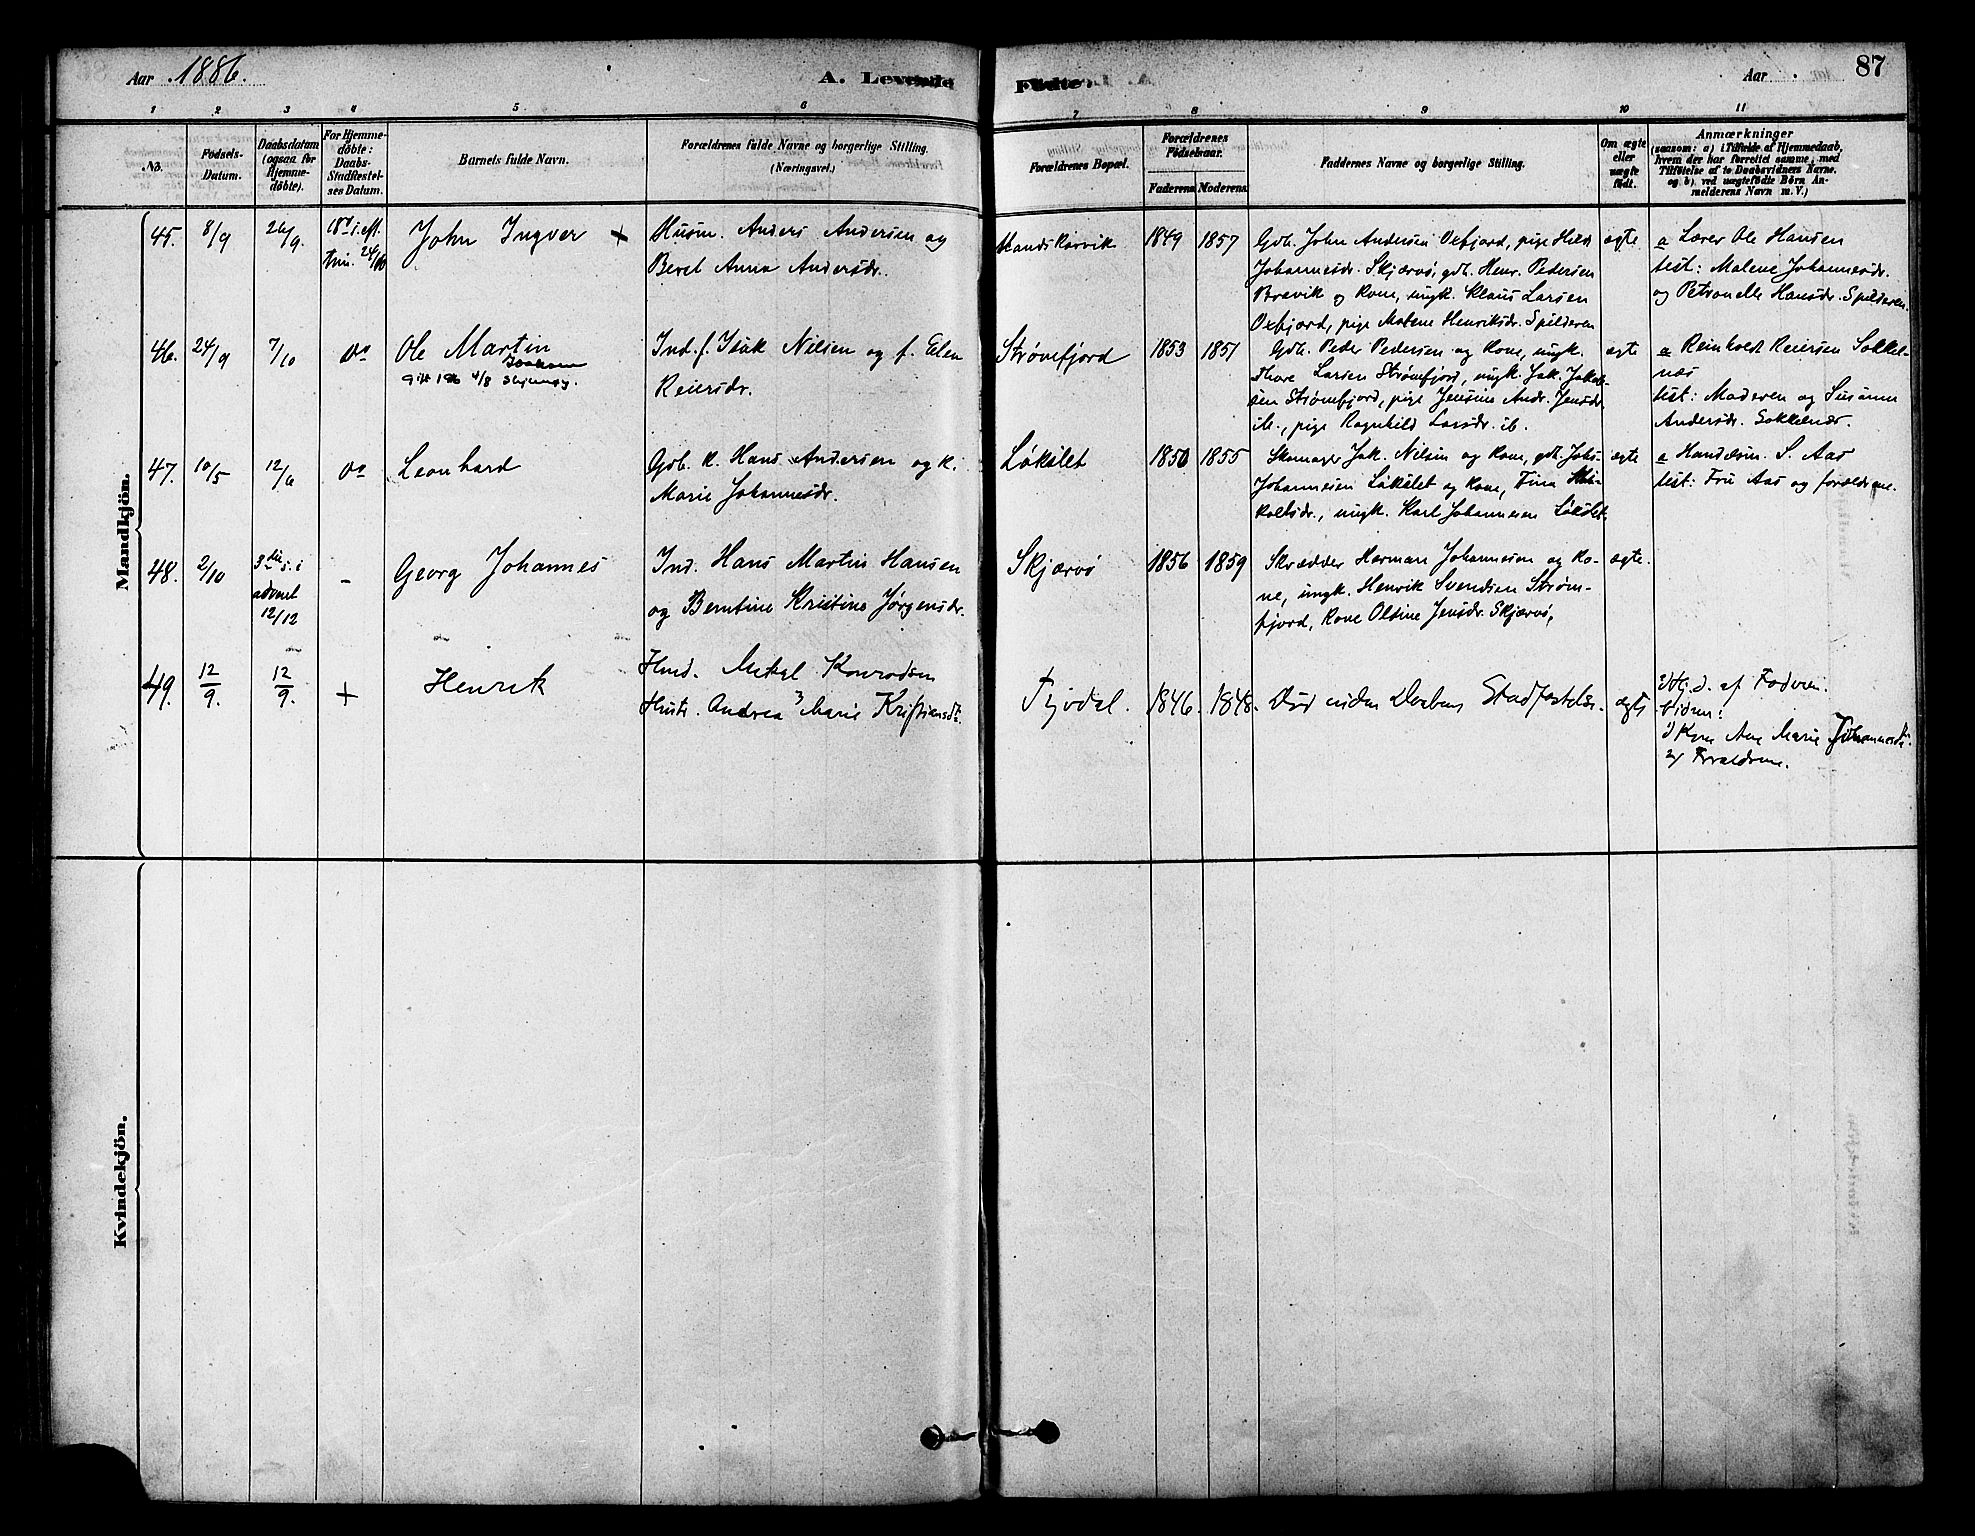 Aar 1886.
A. Levende
Fødte.
Aar
87
1 2 3 4 5 6 7 8 9 10 11
No.
Fødsels-Datum.
Daabsdatum (ogsaa for Hjemme-døbte).
For Hjemme-døbte: Daabs-Stadfæstel-ses Datum.
Barnets fulde Navn.
Forældrenes fulde Navne og borgerlige Stilling. (Næringsvei.)
Forældrenes Bopæl.
Forældrenes Fødselsaar.
Faderens Moderens
Faddernes Navne og borgerlige Stilling.
Om ægte eller uægte født.
Anmærkninger
(saasom: a) i Tilfælde af Hjemmedaab, hvem der har forrettet samme, med Tilføielse af to Daabsvidners Navne, og b) ved uægtefødte Børn An-melderens Navn m. V.)
Mandkjön.
45. 8/9 26/9. 18d. i. eft. Trin. 24/10 John Ingver +
Husm. Anders Andersen og
Berel Anna Andersdr.
1849 1857
Gdb. John Andersen Oxfjord, pige
Johannesdr. Skjærvö, gdb. Henr. Pedersen
Brevik og Kone, ungk. Klaus Larsen
Oxfjord, pige Malene Henriksdr. Spilderen
ægte
a Lærer Ole Hansen
test: Malene Johannesdr.
og Petronelle Hansdr. Spilderen.
46. 24/9 7/10 do Ole Martin
Ind. f. Isak Nilsen og f. Elen
Reiersdr.
Strømfjord
1853 1851
Gdb. Peder Pedersen og Kone, ungk.
Thore Larsen Strømfjord, ungk. Jak. Jakob-
sen Strømfjord, pige Jensine Andr. Jensdr.
ib., pige Ragnhild Larsdr. ib.
ægte
a Reinholdt Reiersen Sokkel-
næs
test: Moderen og Susanne
Andersdr. Sokkelnæs.
47. 10/5 12/6 do Leonhard
Gdb. k. Hans Andersen og k.
Marie Johannesdr.
Løkslet
1850 1855
Skomager Jak. Nilsen og Kone, gdb. Johs.
Johannesen Løkslet og Kone, Fina
ungk. Karl Johannesen Løkslet.
ægte
a Handelsm. S. Aas
test: Fru Aas og forældrene.
48. 2/10 3die s. i advent 12/12 - Georg Johannes
Ind. Hans Martin Hansen
og Berntine Kristine Jørgensdr.
Skjærvö
1856 1859
Skrædder Herman Johannesen og Ko-
ne, ungk. Henrik Svendsen Strøm-
fjord, Kone Oldine Jensdr. Skjærvö,
ægte.
49. 12/9. 12/9. + Henrik
Mikal Konradsen
Hustr. Andrea Marie Kristiansdtr.
1846. 1848.
Død inden Daabens Stadfæstelse.
ægte
Hj. d. af Faderen.
Vidner:
1) Kone Ane Marie Johannesdtr.
2) Forældrene.
Kvindekjön.